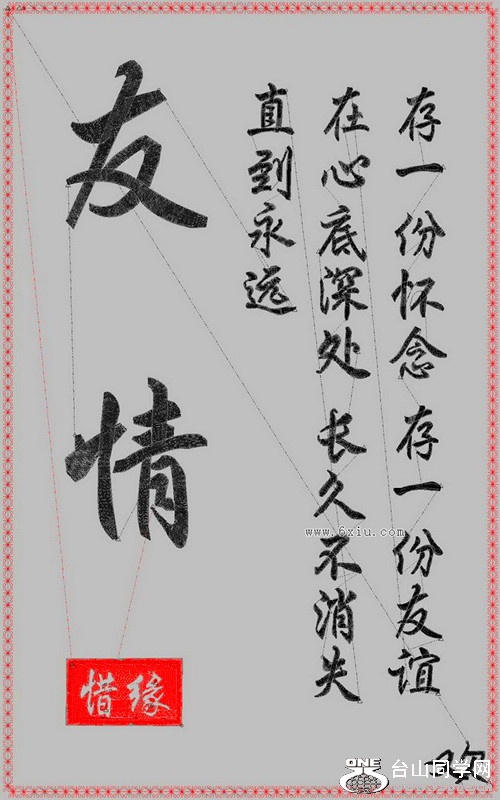 存一份怀念 存一份友谊
在心底深处 长久不消失
直到永远
友情
惜缘
www.6xiu.com
欢
ONE
台山同学网